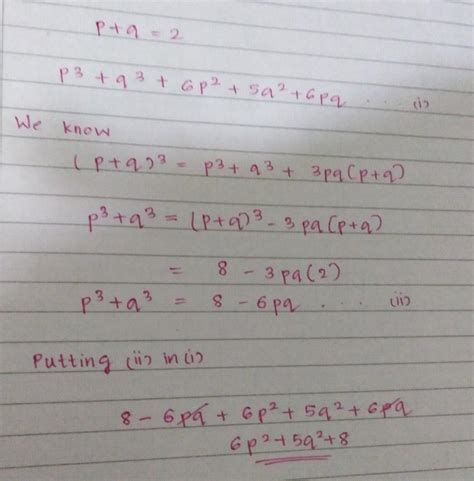 p+q = 2
p³ + q³ + 6p² + 5q² + 6pq .... (i)
We know
(p+q)³ = p³ + q³ + 3pq(p+q)
p³+q³ = (p+q)³ - 3pq(p+q)
= 8 - 3pq(2)
p³+q³ = 8 - 6pq .... (ii)
Putting (ii) in (i)
8 - 6pq + 6p² + 5q² + 6pq
6p² + 5q² + 8